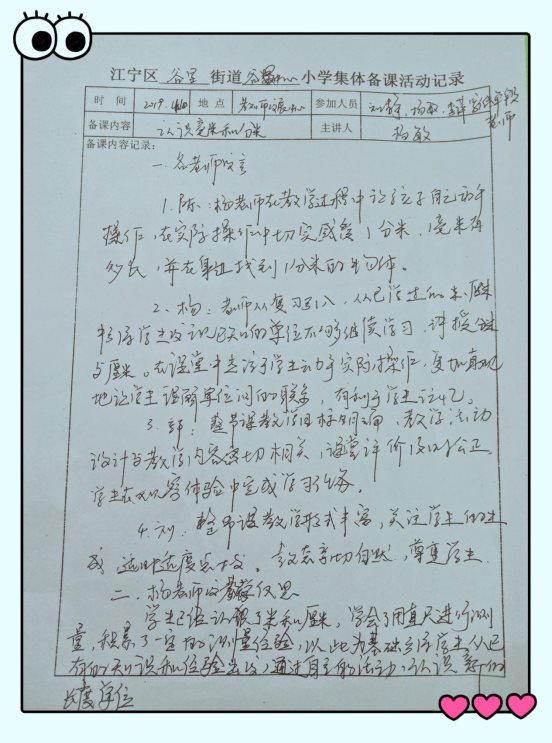 江宁区 谷里 街道 谷里中心 小学集体备课活动记录
时 间 2019.4.10 地 点 参加人员 刘静、杨敏、
老师
备课内容 认识毫米和分米 主讲人 杨敏
备课内容记录：
一、各老师发言
1.陈：杨老师在教学过程中让孩子自己动手
操作，在实际操作中切实感受1分米、1毫米有
多长，并在身上找到1分米的物体。
2、杨：老师从复习引入，从已学过的米、厘米
单位不够继续学习，讲授分米
与毫米。在课堂中关注学生动手实际操作，更加直观
地让学生理解单位间的联系，有利于学生记忆。
3.郭：整节课教学目标明确，教学活动
设计与教学内容密切相关，课堂评价及时公正
学生在从容体验中完成学习任务。
4.刘：整节课教学形式丰富，关注学生的生
成，适时适度点拨。教态亲切自然，尊重学生
二、杨老师反思
学生已经认识了米和厘米，学会了用直尺进行测
量，积累了一定的测量经验，以此为基础引导学生从已
有的知识和经验出发，通过自主的活动，认识新的
长度单位